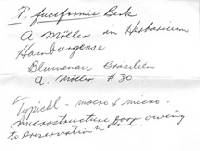 T. fuciformis Berk
A Möller in Herbarium
Hamburgense
Blumenau Brasilien
A. Möller # 30
"Topical - macro & micro.
microstructure poor owing
to preservation